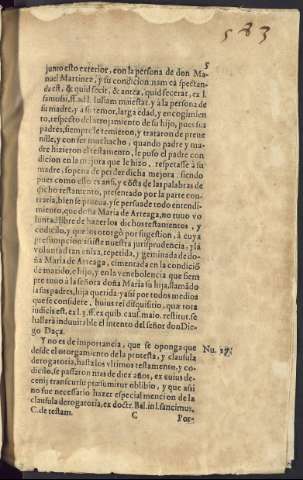 583
5
junto esto exterior, con la persona de don Ma-
nuel Martinez, y su condicion: nam ea spectan-
da est, & quid fecit, & antea, quid fecerat, ex l.
famosi, ff. ad l. Iuliam maiestat. y à la persona de
su madre, y a su temor, larga edad, y encogimien
to, respecto del arrojamiento de su hijo, pues sus
padres, siempre le temieron, y trataron de preue
nille, y con ser muchacho, quando padre y ma-
dre hizieron el testamento, le puso el padre con
dicion en la mejora que le hizo, respetasse à su
madre, sopena de perder dicha mejora: siendo
pues como esto es ansi, y cõsta de las palabras de
dicho testamento, presentado por la parte con-
traria, bien se prueua, y se persuade todo entendi-
miento, que doña Maria de Arteaga, no tuuo vo
luntad libre de hazer los dichos testamentos, y
codicilo, y que los otorgò por sugestion, à cuya
presumpcion assiste nuestra jurisprudencia, y la
voluntad tan enixa, repetida, y geminada de do-
ña Maria de Arteaga, cimentada en la condiciõ
de marido, e hijo, y en la veneuolencia que siem
pre tuuo à la señora doña Maria su hija, llamãdo
la sus padres, hija querida: y assi por todos medios
que se considere, huius rei disquisitio, quæ tota
iudicis est. ex l. 3. ff. ex quib. caus. maio. restitut. se
hallarà indubitable el intento del señor don Die-
go Daça.
Y no es de importancia, que se oponga que
desde el otorgamiento de la protesta, y clausula
derogatoria, hasta los vltimos testamento, y co-
dicilo, se passaron mas de diez años, ex cuius de-
cenij transcursu præsumitur obliuio, y que assi
no fue necessario hazer especial mencion de la
clausula derogatoria, ex doctr. Bal. in l. sancimus,
C. de testam.
Nu. 27.
C
Por-